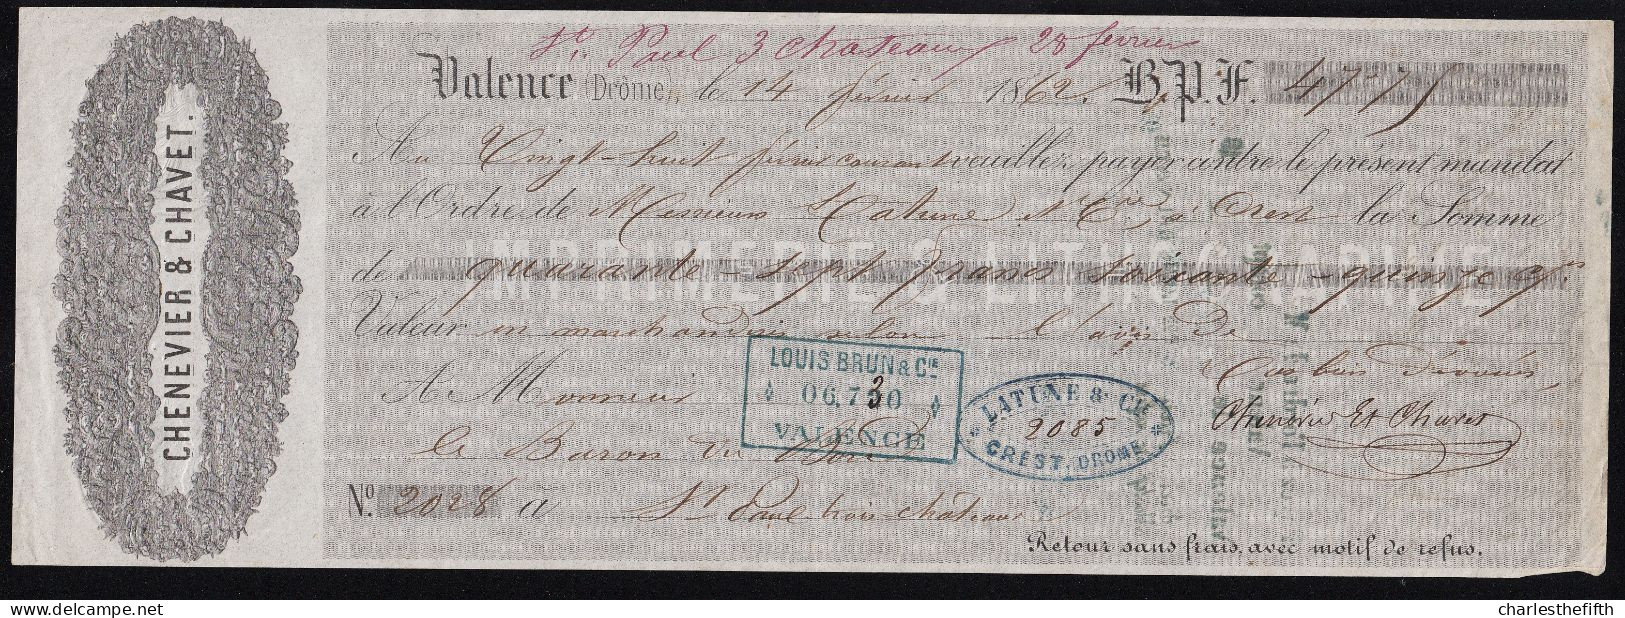 St. Paul 3 chateaux 28 fevrier
CHENEVIER & CHAVET.
Valence (Drôme), le 14 février 1862. B.P.F. 47,75
Au Vingt-huit février courant veuillez payer contre le présent mandat
à l'Ordre de Messieurs Latune & Cie, à Crest la Somme
de quarante-sept francs soixante-quinze cs
IMPRIMERIE & LITHOGRAPHIE
Valeur en marchandises selon l'avis de
Vos bien dévoués
A Monsieur
LOUIS BRUN & CIE
06,730
VALENCE
LATUNE & CIE
2085
CREST, DROME
Chenevier Et Chavet
le Baron du
No. 2028 à St Paul trois châteaux
Retour sans frais, avec motif de refus.
delcampe.net
charlesthefifth